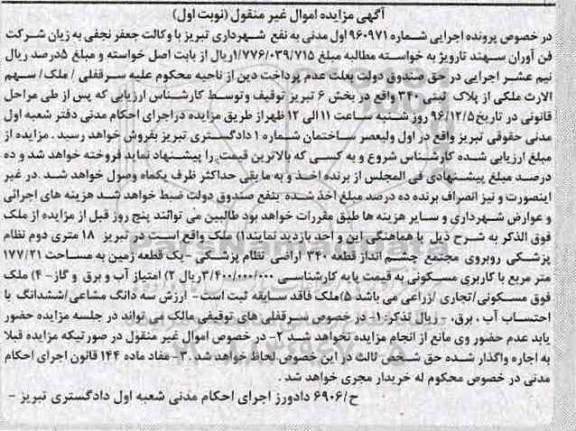 آگهی مزایده اموال غیر منقول (نوبت اول)
در خصوص پرونده اجرایی شماره ۹۶۰۹۷۱ اول مدنی به نفع شهرداری تبریز با وکالت جعفر نجفی به زیان شرکت
فن آوران سهند تارویز به خواسته مطالبه مبلغ ۱/۷۷۶/۰۳۹/۷۱۵ریال از بابت اصل خواسته و مبلغ ۵درصد ریال
نیم عشر اجرایی در حق صندوق دولت بعلت عدم پرداخت دین از ناحیه محکوم علیه سرقفلی / ملک/ سهم
الارث ملکی از پلاک ثبتی ۳۴۰ واقع در بخش ۶ تبریز توقیف وتوسط کارشناس ارزیابی که پس از طی مراحل
قانونی در تاریخ ۹۶/۱۲/۵ روز شنبه ساعت ۱۱ الی ۱۲ ظهر از طریق مزایده دراجرای احکام مدنی دفتر شعبه اول
مدنی حقوقی تبریز واقع در اول ولیعصر ساختمان شماره ۱ دادگستری تبریز بفروش خواهد رسید . مزایده از
مبلغ ارزیابی شده کارشناس شروع و به کسی که بالاترین قیمت را پیشنهاد نماید فروخته خواهد شد و ده
درصد مبلغ پیشنهادی فی المجلس از برنده اخذ و به ما بقی حداکثر ظرف یکماه وصول خواهد شد . در غیر
اینصورت و نیز انصراف برنده ده درصد مبلغ اخذ شده بنفع صندوق دولت ضبط خواهد شد هزینه های اجرائی
و عوارض شهرداری و سایر هزینه ها طبق مقررات خواهد بود طالبین می توانند پنج روز قبل از مزایده از ملک
فوق الذکر به شرح ذیل با هماهنگی این واحد بازدید نمایند۱) ملک واقع است در تبریز ۱۸ متری دوم نظام
پزشکی روبروی مجتمع چشم انداز قطعه ۳۴۰ اراضی نظام پزشکی -یک قطعه زمین به مساحت ۱۷۷/۲۱
متر مربع با کاربری مسکونی به قیمت پایه کارشناسی ۳/۴۰۰/۰۰۰/۰۰۰ریال ۲) امتیاز آب و برق و گاز- ۴) ملک
فوق مسکونی/تجاری /زراعی می باشد ۵)ملک فاقد سابقه ثبت است- ارزش سه دانگ مشاعی/ششدانگ با
احتساب آب ، برق، - ریال تذکر: ۱- در خصوص سرقفلی های توقیفی مالک می تواند در جلسه مزایده حضور
یابد عدم حضور وی مانع از انجام مزایده نخواهد شد ۲- در خصوص اموال غیر منقول در صورتیکه مزایده قبلا
به اجاره واگذار شده حق شخص ثالث در این خصوص لحاظ خواهد شد .۳- مفاد ماده ۱۴۴ قانون اجرای احکام
مدنی در خصوص محکوم له خریدار مجری خواهد شد .
ح/۶۹۰۶ دادورز اجرای احکام مدنی شعبه اول دادگستری تبریز -